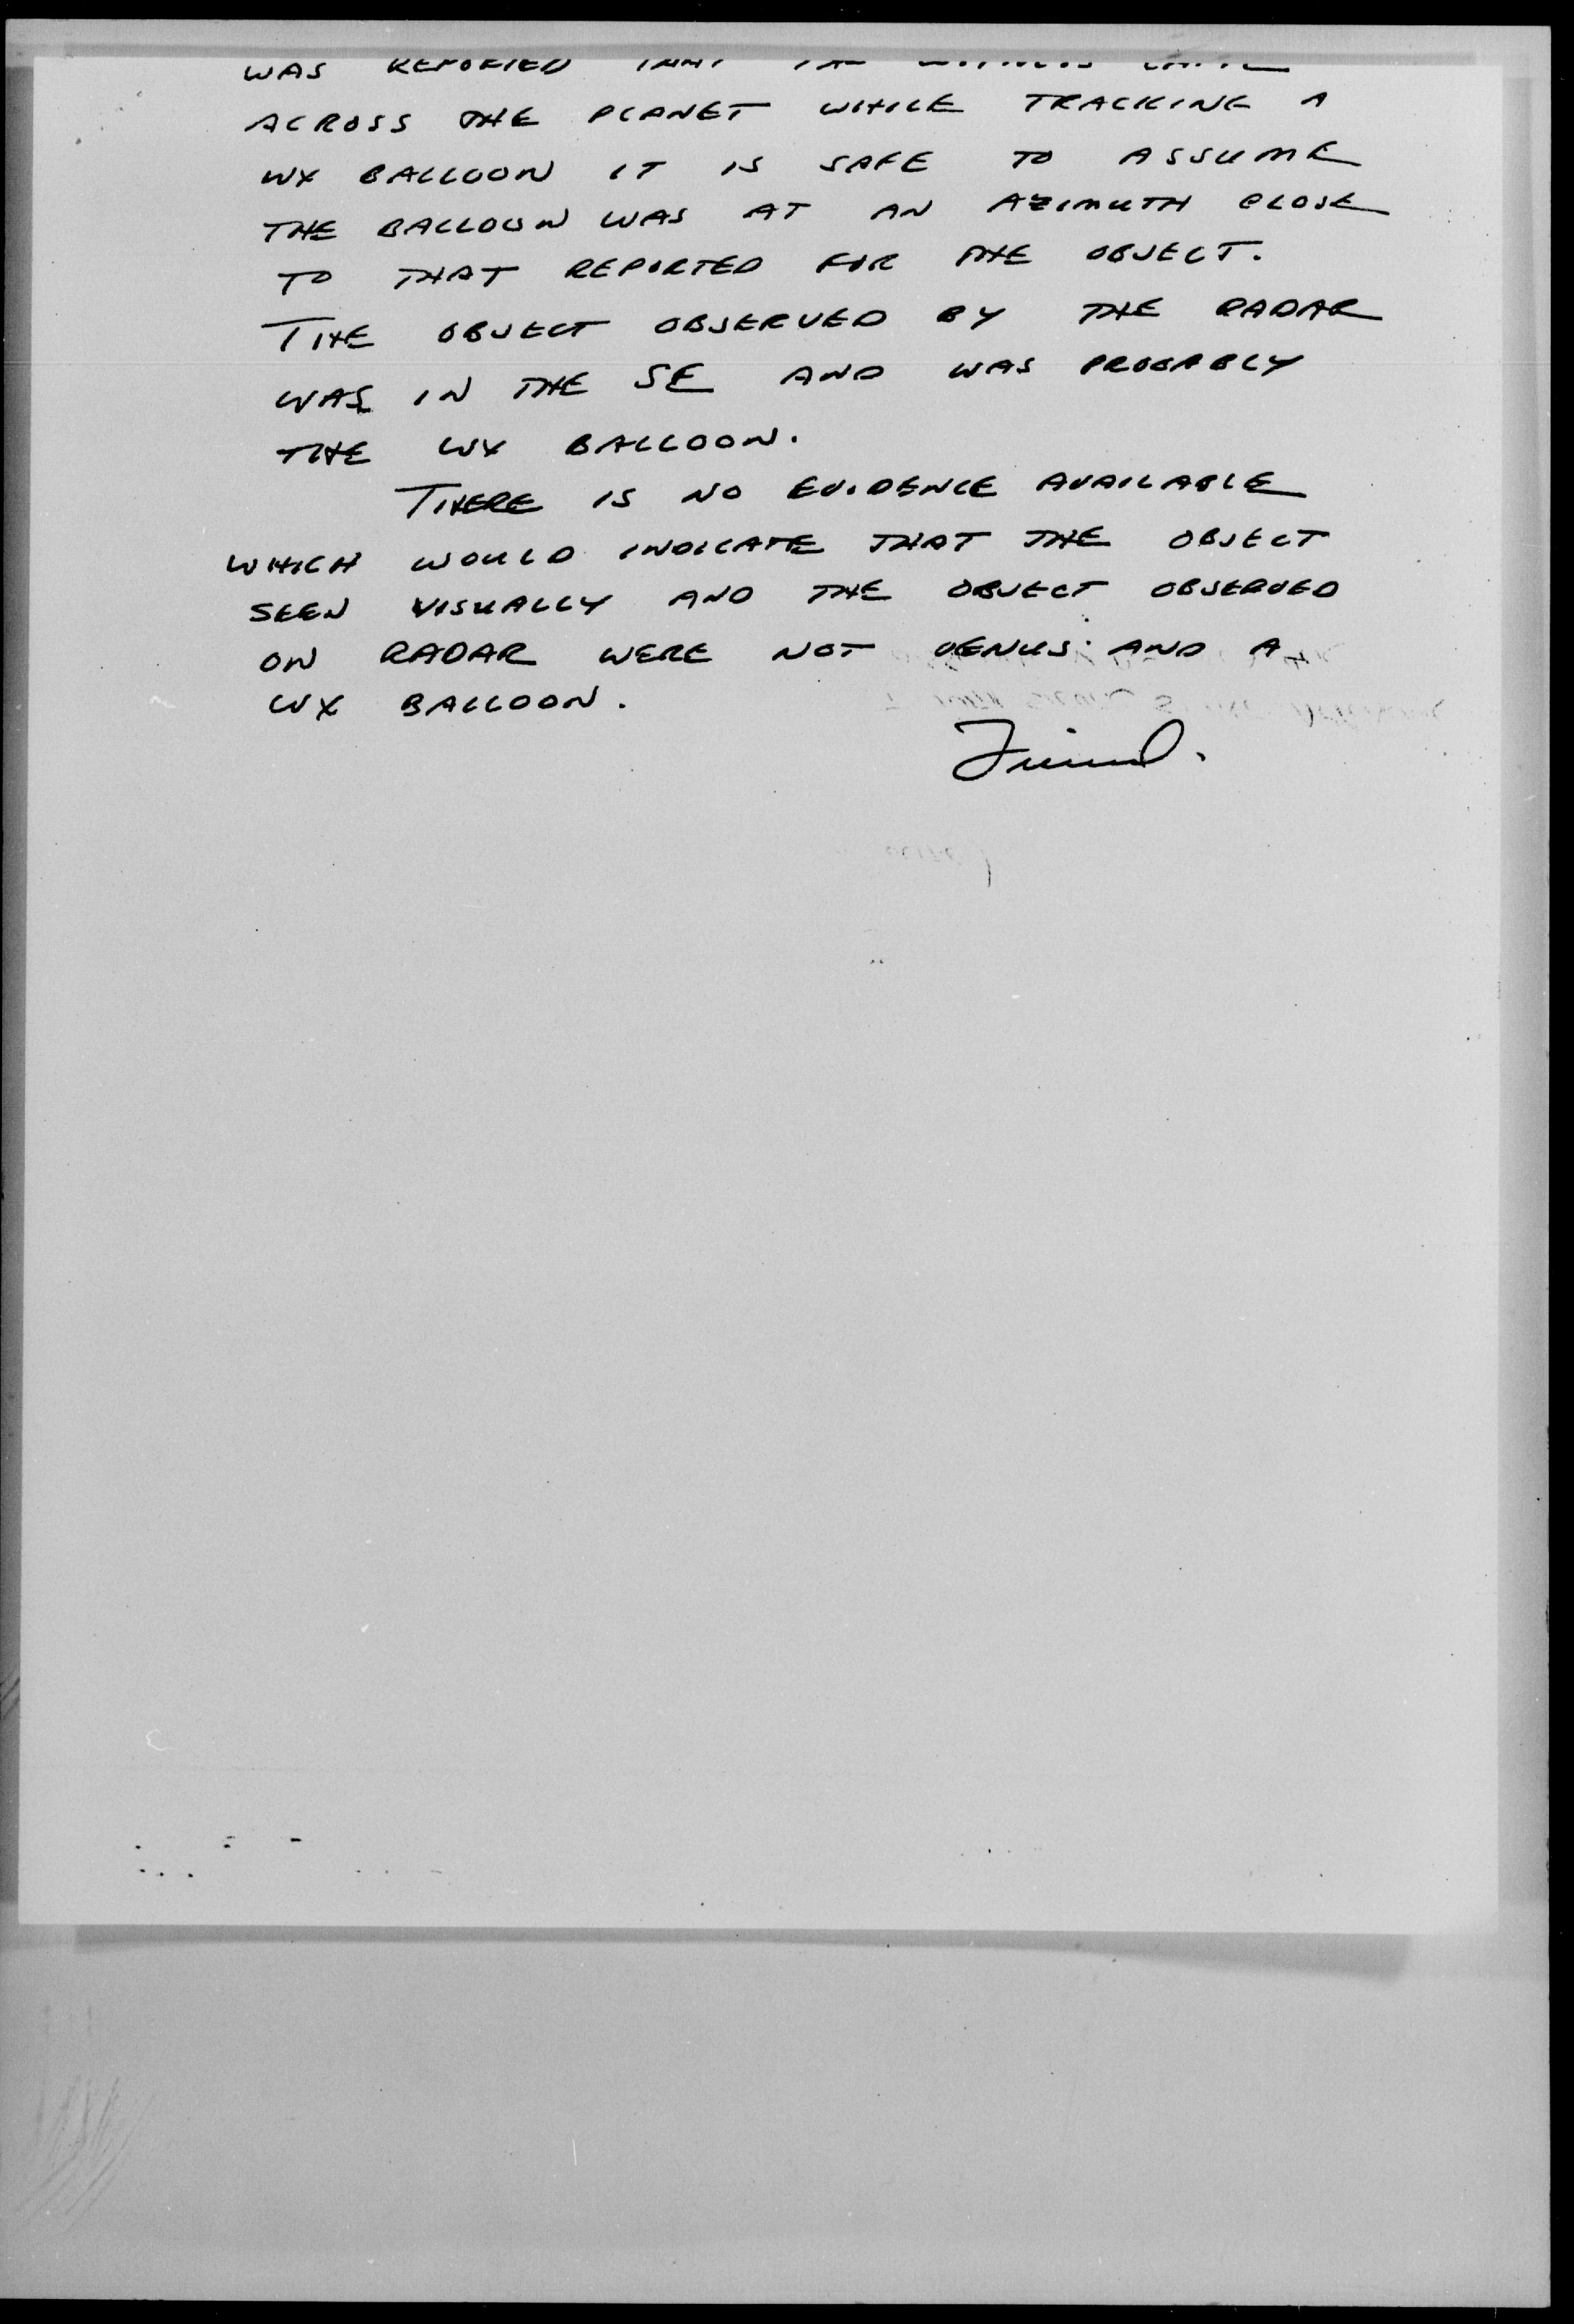 WAS REPORTED THAT
ACROSS THE PLANET WHILE TRACKING A
WX BALLOON IT IS SAFE TO ASSUME
THE BALLOON WAS AT AN AZIMUTH CLOSE
TO THAT REPORTED FOR THE OBJECT.
THE OBJECT OBSERVED BY THE RADAR
WAS IN THE SE AND WAS PROBABLY
THE WX BALLOON.
THERE IS NO EVIDENCE AVAILABLE
WHICH WOULD INDICATE THAT THE OBJECT
SEEN VISUALLY AND THE OBJECT OBSERVED
ON RADAR WERE NOT VENUS AND A
WX BALLOON.
Friend.